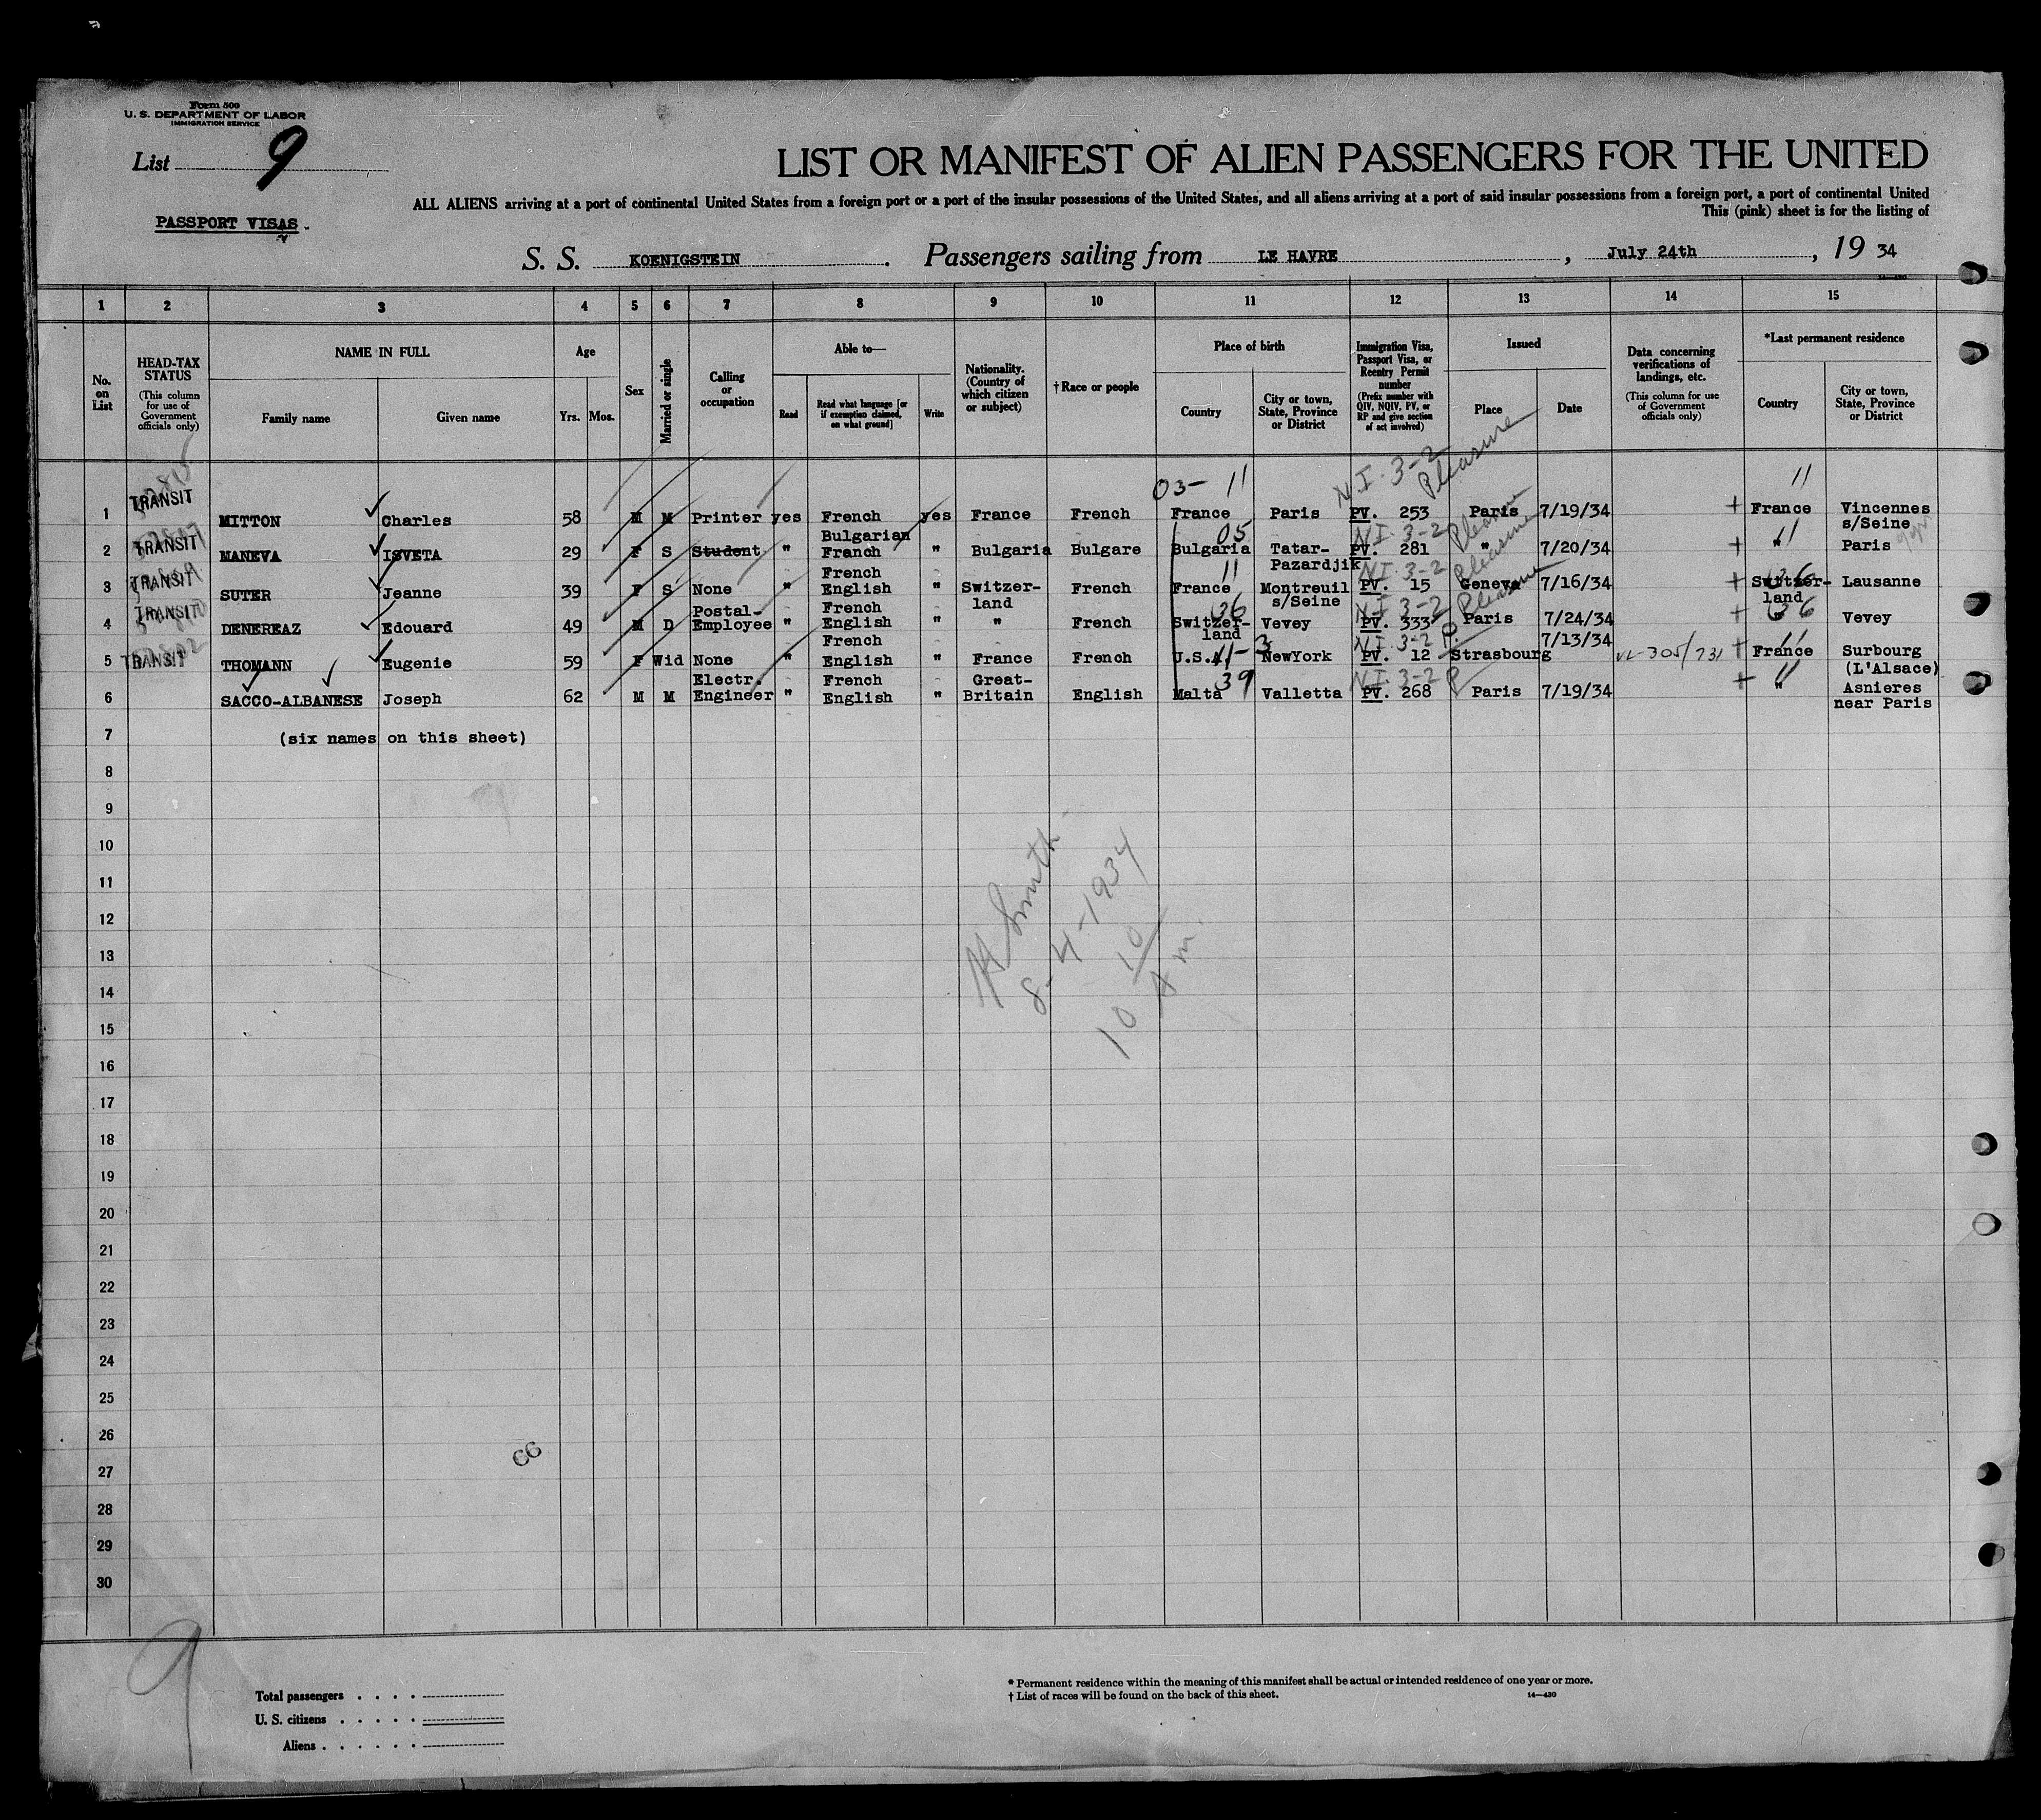 Form 500
U. S. DEPARTMENT OF LABOR
IMMIGRATION SERVICE
List 9
LIST OR MANIFEST OF ALIEN PASSENGERS FOR THE UNITED
ALL ALIENS arriving at a port of continental United States from a foreign port or a port of the insular possessions of the United States, and all aliens arriving at a port of said insular possessions from a foreign port, a port of continental United
This (pink) sheet is for the listing of
PASSPORT VISAS.
S. S. KOENIGSTEIN. Passengers sailing from LE HAVRE, July 24th, 19 34
14—430
1 2 3 4 5 6 7 8 9 10 11 12 13 14 15
No. on List
HEAD-TAX STATUS
(This column for use of Government officials only)
NAME IN FULL
Family name
Given name
Age
Yrs.
Mos.
Sex
Married or single
Calling or occupation
Able to—
Read
Read what language [or if exemption claimed, on what ground]
Write
Nationality. (Country of which citizen or subject)
†Race or people
Place of birth
Country
City or town, State, Province or District
Immigration Visa, Passport Visa, or Reentry Permit number
(Prefix number with QIV, NQIV, PV, or RP and give section of act involved)
Issued
Place
Date
Data concerning verifications of landings, etc.
(This column for use of Government officials only)
*Last permanent residence
Country
City or town, State, Province or District
03- 11 N.I. 3-2 Pleasure 11
1 TRANSIT MITTON Charles 58 M M Printer yes French yes France French France Paris PV. 253 Paris 7/19/34 + France Vincennes s/Seine
05 N.I. 3-2 Pleasure 11
2 TRANSIT MANEVA ISVETA 29 F S Student " Bulgarian French " Bulgaria Bulgare Bulgaria Tatar-Pazardjik PV. 281 " 7/20/34 + " Paris
11 N.I. 3-2 Pleasure 36
3 TRANSIT SUTER Jeanne 39 F S None " French English " Switzer-land French France Montreuil s/Seine PV. 15 Geneva 7/16/34 + Switzer-land Lausanne
36 N.I. 3-2 Pleasure 36
4 TRANSIT DENEREAZ Edouard 49 M D Postal-Employee " French English " " French Switzer-land Vevey PV. 333 Paris 7/24/34 + Vevey
N.I. 3-2 P. 11
5 TRANSIT THOMANN Eugenie 59 F Wid None " French English " France French U.S.A. NewYork PV. 12 Strasbourg 7/13/34 + France Surbourg (L'Alsace)
39 N.I. 3-2 P 11
6 SACCO-ALBANESE Joseph 62 M M Electr. Engineer " French English " Great-Britain English Malta Valletta PV. 268 Paris 7/19/34 + " Asnieres near Paris
7 (six names on this sheet)
8
9
10
11
12
13
14
15
16
17
18
19
20
21
22
23
24
25
26
27
28
29
30
Smith
8-4-1934
10 10 Am.
9
Total passengers
U. S. citizens
Aliens
* Permanent residence within the meaning of this manifest shall be actual or intended residence of one year or more.
† List of races will be found on the back of this sheet.
14—430